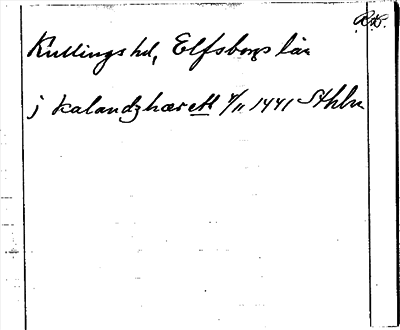 Kullings hd, Elfsborgs län
j kalandz hærett 4/11 1441 Sthbr